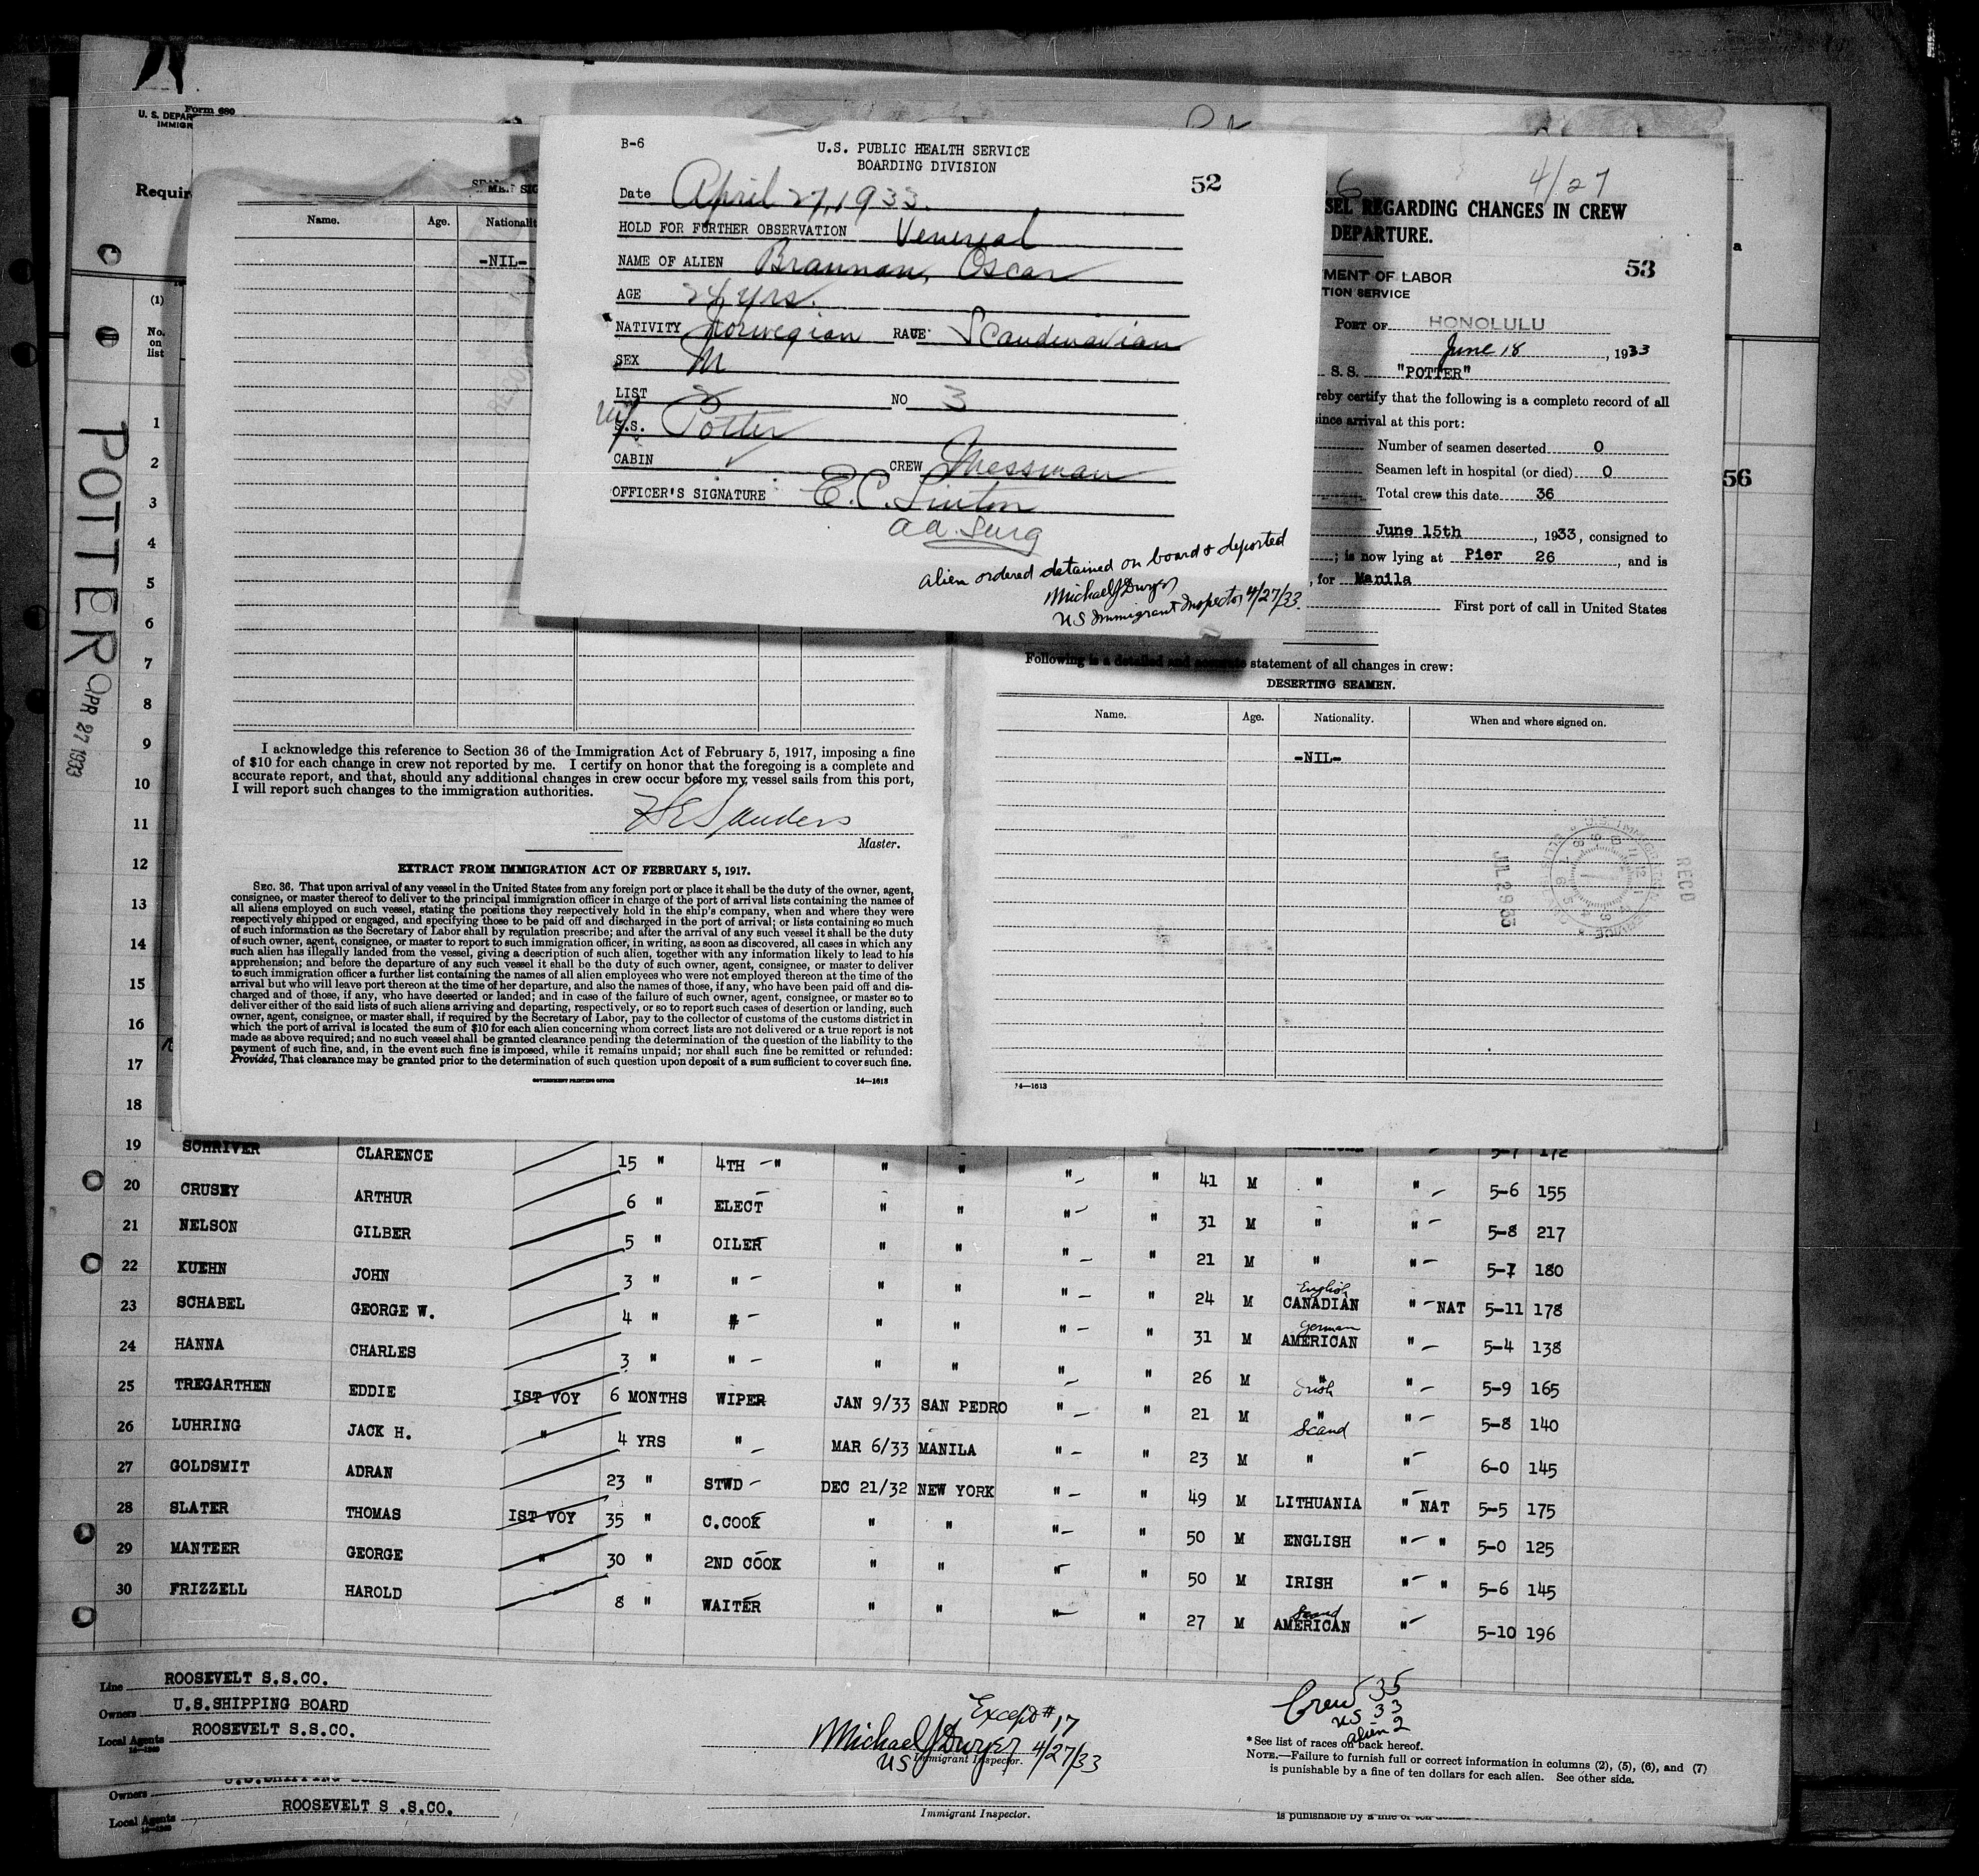 Form 680
U. S. DEPAR
IMMIGR
Requir
(1)
No.
on
list
POTTER
APR 27 1933
B-6
U.S. PUBLIC HEALTH SERVICE
BOARDING DIVISION
52
Date April 27, 1933.
HOLD FOR FURTHER OBSERVATION Venereal
NAME OF ALIEN Braunan, Oscar
AGE 24 yrs.
NATIVITY Norwegian RAVE Scandinavian
SEX M
LIST 2 NO 3
S.S. Potter
CABIN ✓ CREW Messman
OFFICER'S SIGNATURE E.C. Linton
aa. Surg
alien ordered detained on board & deported
Michael J Dwyer
US Immigrant Inspector 4/27/33.
Name. Age. Nationalit
-NIL-
4/27
SEL REGARDING CHANGES IN CREW
DEPARTURE.
53
MENT OF LABOR
TION SERVICE
PORT OF HONOLULU
June 18, 1933
S. S. "POTTER"
reby certify that the following is a complete record of all
since arrival at this port:
Number of seamen deserted 0
Seamen left in hospital (or died) 0
Total crew this date 36
June 15th, 1933, consigned to
; is now lying at Pier 26, and is
, for Manila
First port of call in United States
56
Following is a detailed and accurate statement of all changes in crew:
DESERTING SEAMEN.
Name. Age. Nationality. When and where signed on.
-NIL-
RECD
JUL 2 1933
14—1613
I acknowledge this reference to Section 36 of the Immigration Act of February 5, 1917, imposing a fine
of $10 for each change in crew not reported by me. I certify on honor that the foregoing is a complete and
accurate report, and that, should any additional changes in crew occur before my vessel sails from this port,
I will report such changes to the immigration authorities.
H E Sanders
Master.
EXTRACT FROM IMMIGRATION ACT OF FEBRUARY 5, 1917.
SEC. 36. That upon arrival of any vessel in the United States from any foreign port or place it shall be the duty of the owner, agent,
consignee, or master thereof to deliver to the principal immigration officer in charge of the port of arrival lists containing the names of
all aliens employed on such vessel, stating the positions they respectively hold in the ship's company, when and where they were
respectively shipped or engaged, and specifying those to be paid off and discharged in the port of arrival; or lists containing so much
of such information as the Secretary of Labor shall by regulation prescribe; and after the arrival of any such vessel it shall be the duty
of such owner, agent, consignee, or master to report to such immigration officer, in writing, as soon as discovered, all cases in which any
such alien has illegally landed from the vessel, giving a description of such alien, together with any information likely to lead to his
apprehension; and before the departure of any such vessel it shall be the duty of such owner, agent, consignee, or master to deliver
to such immigration officer a further list containing the names of all alien employees who were not employed thereon at the time of the
arrival but who will leave port thereon at the time of her departure, and also the names of those, if any, who have been paid off and dis-
charged and of those, if any, who have deserted or landed; and in case of the failure of such owner, agent, consignee, or master so to
deliver either of the said lists of such aliens arriving and departing, respectively, or so to report such cases of desertion or landing, such
owner, agent, consignee, or master shall, if required by the Secretary of Labor, pay to the collector of customs of the customs district in
which the port of arrival is located the sum of $10 for each alien concerning whom correct lists are not delivered or a true report is not
made as above required; and no such vessel shall be granted clearance pending the determination of the question of the liability to the
payment of such fine, and, in the event such fine is imposed, while it remains unpaid; nor shall such fine be remitted or refunded:
Provided, That clearance may be granted prior to the determination of such question upon deposit of a sum sufficient to cover such fine.
GOVERNMENT PRINTING OFFICE 14—1613
1
2
3
4
5
6
7
8
9
10
11
12
13
14
15
16
17
18
19 SCHRIVER CLARENCE 15 " 4TH -" " " " " 41 M " " 5-7 172
20 CRUSEY ARTHUR 6 " ELECT " " " " 31 M " " 5-6 155
21 NELSON GILBER 5 " OILER " " " " 21 M " " 5-8 217
22 KUEHN JOHN 3 " " " " " " 24 M English CANADIAN " NAT 5-7 180
23 SCHABEL GEORGE W. 4 " " " " " " 31 M German AMERICAN " 5-11 178
24 HANNA CHARLES 3 " " " " " " 26 M " " 5-4 138
25 TREGARTHEN EDDIE IST VOY 6 MONTHS WIPER JAN 9/33 SAN PEDRO " " 21 M Irish " " 5-9 165
26 LUHRING JACK H. " 4 YRS " MAR 6/33 MANILA " " 23 M Scand " " 5-8 140
27 GOLDSMIT ADRAN 23 " STWD DEC 21/32 NEW YORK " " 49 M LITHUANIA " NAT 6-0 145
28 SLATER THOMAS IST VOY 35 " C.COOK " " " " 50 M ENGLISH " " 5-5 175
29 MANTEER GEORGE " 30 " 2ND COOK " " " " 50 M IRISH " " 5-0 125
30 FRIZZELL HAROLD 8 " WAITER " " " " 27 M Scand AMERICAN " 5-6 145
5-10 196
Line ROOSEVELT S.S.CO.
Owners U.S.SHIPPING BOARD
Local Agents ROOSEVELT S.S.CO.
Except #17
Michael J Dwyer 4/27/33
US Immigrant Inspector.
Crew 35
US 33
alien 2
*See list of races on back hereof.
NOTE.—Failure to furnish full or correct information in columns (2), (5), (6), and (7)
is punishable by a fine of ten dollars for each alien. See other side.
Owners U.S.SHIPPING BOARD
Local Agents ROOSEVELT S .S.CO.
Immigrant Inspector.